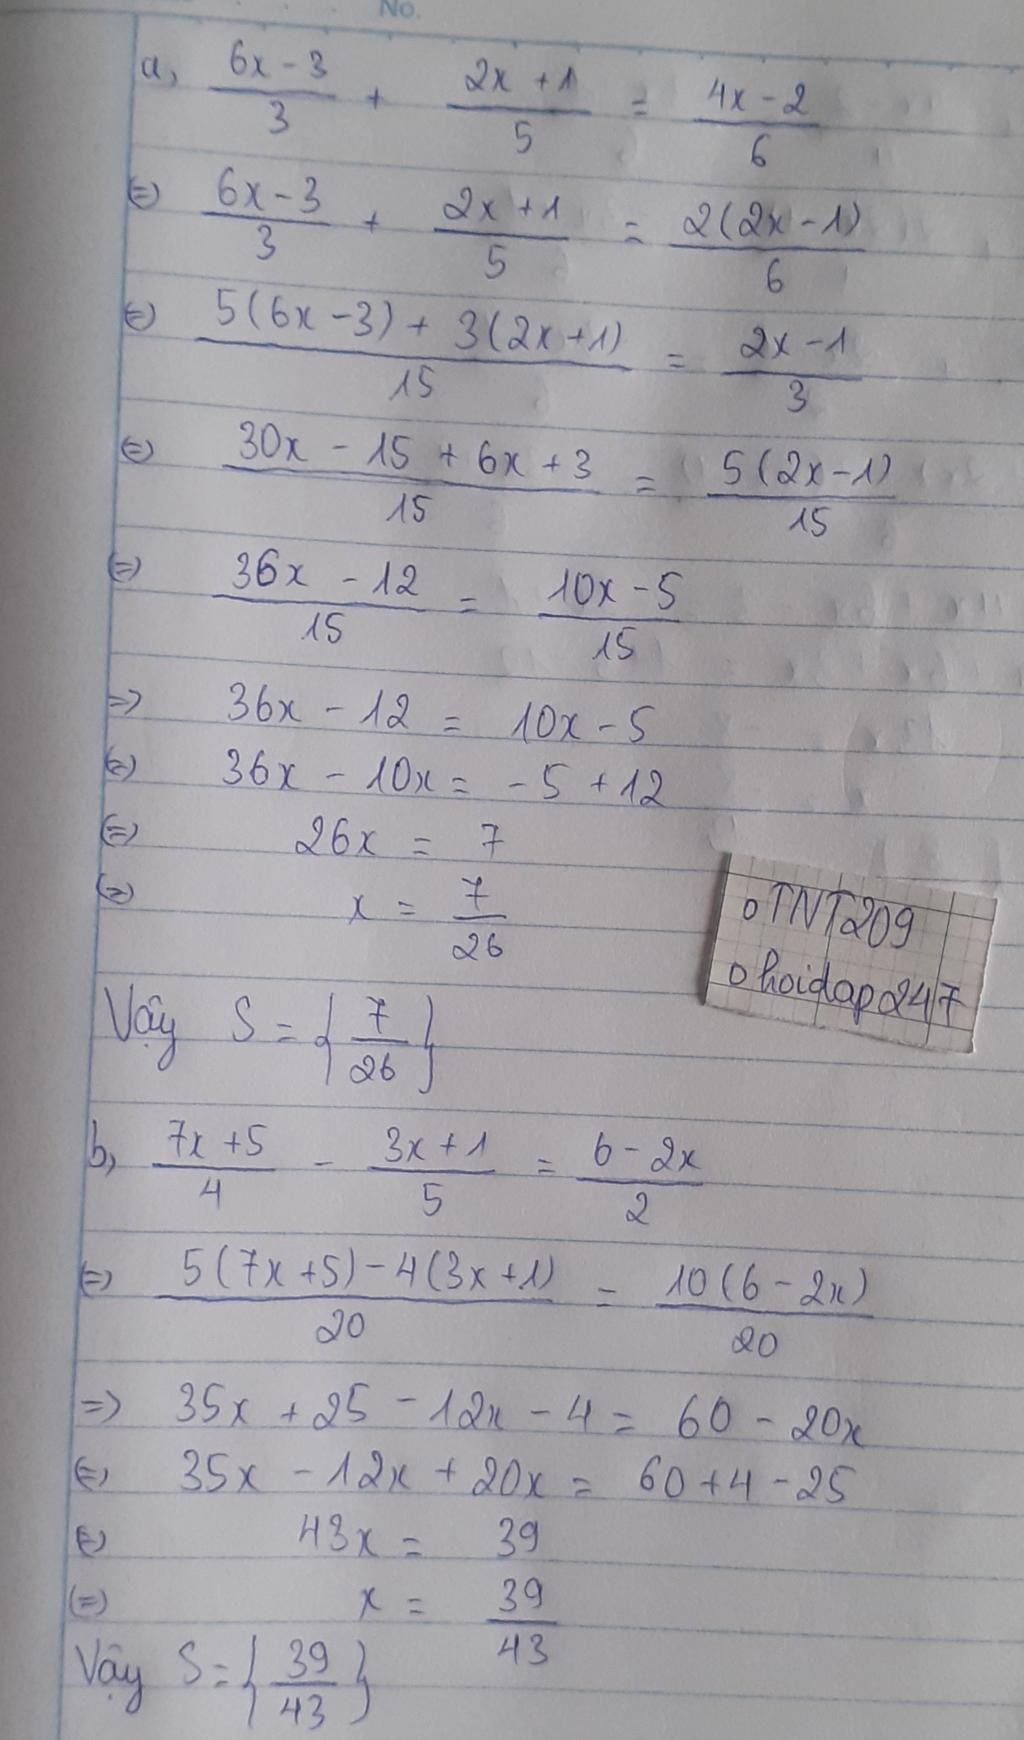 No.
a, (6x - 3)/3 + (2x + 1)/5 = (4x - 2)/6
(=) (6x - 3)/3 + (2x + 1)/5 = 2(2x - 1)/6
(=) (5(6x - 3) + 3(2x + 1))/15 = (2x - 1)/3
(=) (30x - 15 + 6x + 3)/15 = 5(2x - 1)/15
(=) (36x - 12)/15 = (10x - 5)/15
=) 36x - 12 = 10x - 5
(=) 36x - 10x = - 5 + 12
(=) 26x = 7
(=) x = 7/26
o TNT209
o hoidap247
Vậy S = { 7/26 }
b, (7x + 5)/4 - (3x + 1)/5 = (6 - 2x)/2
(=) (5(7x + 5) - 4(3x + 1))/20 = 10(6 - 2x)/20
=) 35x + 25 - 12x - 4 = 60 - 20x
(=) 35x - 12x + 20x = 60 + 4 - 25
(=) 43x = 39
(=) x = 39/43
Vậy S = { 39/43 }